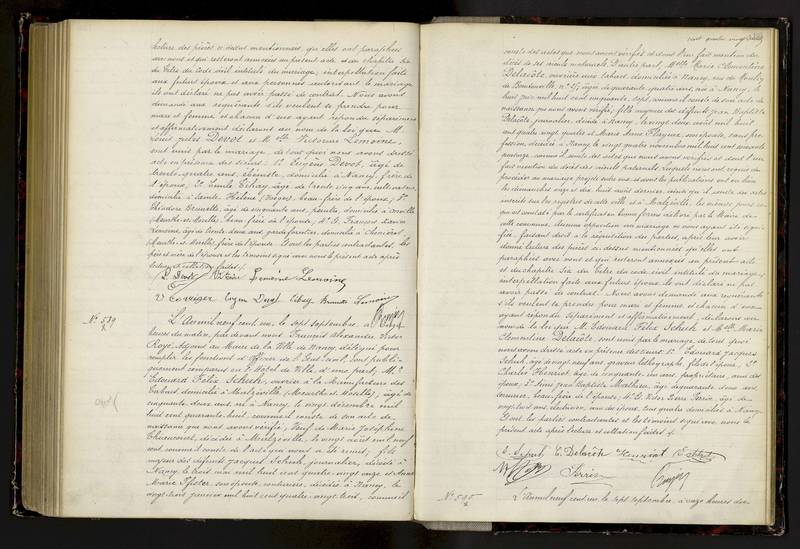 lecture des pièces ci dessus mentionnées, qu'elles ont paraphées
avec nous et qui resteront annexées au présent acte et du chapitre six
du titre du code civil intitulé du mariage, interpellation faite
aux futurs époux et aux personnes autorisant le mariage
ils ont déclaré ne pas avoir passé de contrat. Nous avons
demandé aux requérants s'ils veulent se prendre pour
mari et femme et chacun d'eux ayant répondu séparément
et affirmativement déclarons au nom de la loi que M.
Louis Jules Devot et Mlle Victorine Lemoine,
sont unis par le mariage, de tout quoi nous avons dressé
acte en présence des sieurs: 1° Eugène Devot, âgé de
trente quatre ans, ébéniste, domicilié à Nancy, frère de
l'époux; 2° Emile âgé de trente cinq ans, cultivateur,
domicilié à Sainte Hélène (Vosges), beau-frère de l'époux; 3°
Théodore Brunette, âgé de cinquante ans, peintre, domicilié à
(Meurthe et Moselle) beau frère de l'épouse; 4° G. François Xavier
Lemoine, âgé de trente deux ans, garde forestier, domicilié à
(Meurthe et Moselle), frère de l'épouse. Dont les parties contractantes, les
père et mère de l'épouse et les témoins signé avec nous le présent acte après
lecture et collation faites.
L. Devot Victorine Lemoine Lemoine
Eugène Devot Brunette Lemoine
N° 579
L'An mil neuf cent un, le sept septembre, à
heures du matin, par devant nous François Alexandre Victor
Roye, Adjoint au Maire de la Ville de Nancy, délégué pour
remplir les fonctions d'Officier de l'Etat Civil, sont publi-
quement comparus en l'Hôtel de Ville d'une part, M.
Edouard Félix Schuh, ouvrier à la Manufacture des
tabacs, domicilié à Malzéville (Meurthe et Moselle), âgé de
cinquante deux ans, né à Nancy, le vingt décembre mil
huit cent quarante huit, comme il conste de son acte de
naissance que nous avons vérifié, Veuf de Marie Joséphine
décédée à Malzéville, le vingt août mil neuf
cent un, comme il conste de l'acte qui nous a été remis, fils
majeur des défunts Jacques Schuh, journalier, décédé à
Nancy, le trois mai mil huit cent quatre vingt onze et Anne
Marie Pfister, son épouse, couturière, décédée à Nancy, le
vingt trois janvier mil huit cent quatre-vingt trois, comme il
cent quatre vingt
conste des actes que nous avons vérifiés et dont l'un fait mention du
décès de ses aïeuls maternels. D'autre part, Mlle Marie Clémentine
Delacôte, ouvrière aux tabacs, domiciliée à Nancy, rue du Faubg
de n° 57, âgée de quarante quatre ans, née à Nancy, le
huit mai mil huit cent cinquante sept, comme il conste de son acte de
naissance que nous avons vérifié, fille majeure des défunts Jean Baptiste
Delacôte, journalier, décédé à Nancy, le vingt deux août mil huit
cent quatre vingt quatre et Marie Anne son épouse, sans pro-
fession, décédée à Nancy, le vingt quatre novembre mil huit cent soixante
quatorze, comme il conste des actes que nous avons vérifiés et dont l'un
fait mention du décès des aïeuls paternels. Lesquels nous ont requis de
procéder au mariage projeté entre eux et dont les publications ont été faites
les dimanches onze et dix huit août dernier, ainsi qu'il conste des actes
inscrits sur les registres de cette ville et à Malzéville, les mêmes jours ce
qui est constaté par le certificat en bonne forme délivré par le Maire de
cette commune, Aucune opposition au mariage ne nous ayant été signi-
fiée, faisant droit à la réquisition des parties, après leur avoir
donné lecture des pièces ci dessus mentionnées qu'elles ont
paraphées avec nous et qui resteront annexées au présent acte
et du chapitre Six du titre du code civil intitulé du mariage;
interpellation faite aux futurs époux, ils ont déclaré ne pas
avoir passé de contrat. Nous avons demandé aux requérants
s'ils veulent se prendre pour mari et femme et chacun d'eux
ayant répondu séparément et affirmativement, déclarons au
nom de la loi que M. Edouard Félix Schuh et Mlle Marie
Clémentine Delacôte, sont unis par le mariage de tout quoi
nous avons dressé acte en présence des sieurs: 1° Edouard Jacques
Schuh, âgé de vingt sept ans, graveur lithographe, fils de l'époux; 2°
Charles Henriot, âgé de cinquante six ans, propriétaire, ami des
époux; 3° Anne Jean Baptiste Mathieu, âgé de quarante deux ans,
cordonnier, beau frère de l'épouse; 4° G. Pierre, âgé de
vingt huit ans, électricien, ami des époux, tous quatre domiciliés à Nancy.
Dont les parties contractantes et les témoins signé avec nous le
présent acte après lecture et collation faites.
E. Schuh C. Delacôte Henriot E. Schuh
N° 595
L'An mil neuf cent un, le sept septembre, à onze heures du